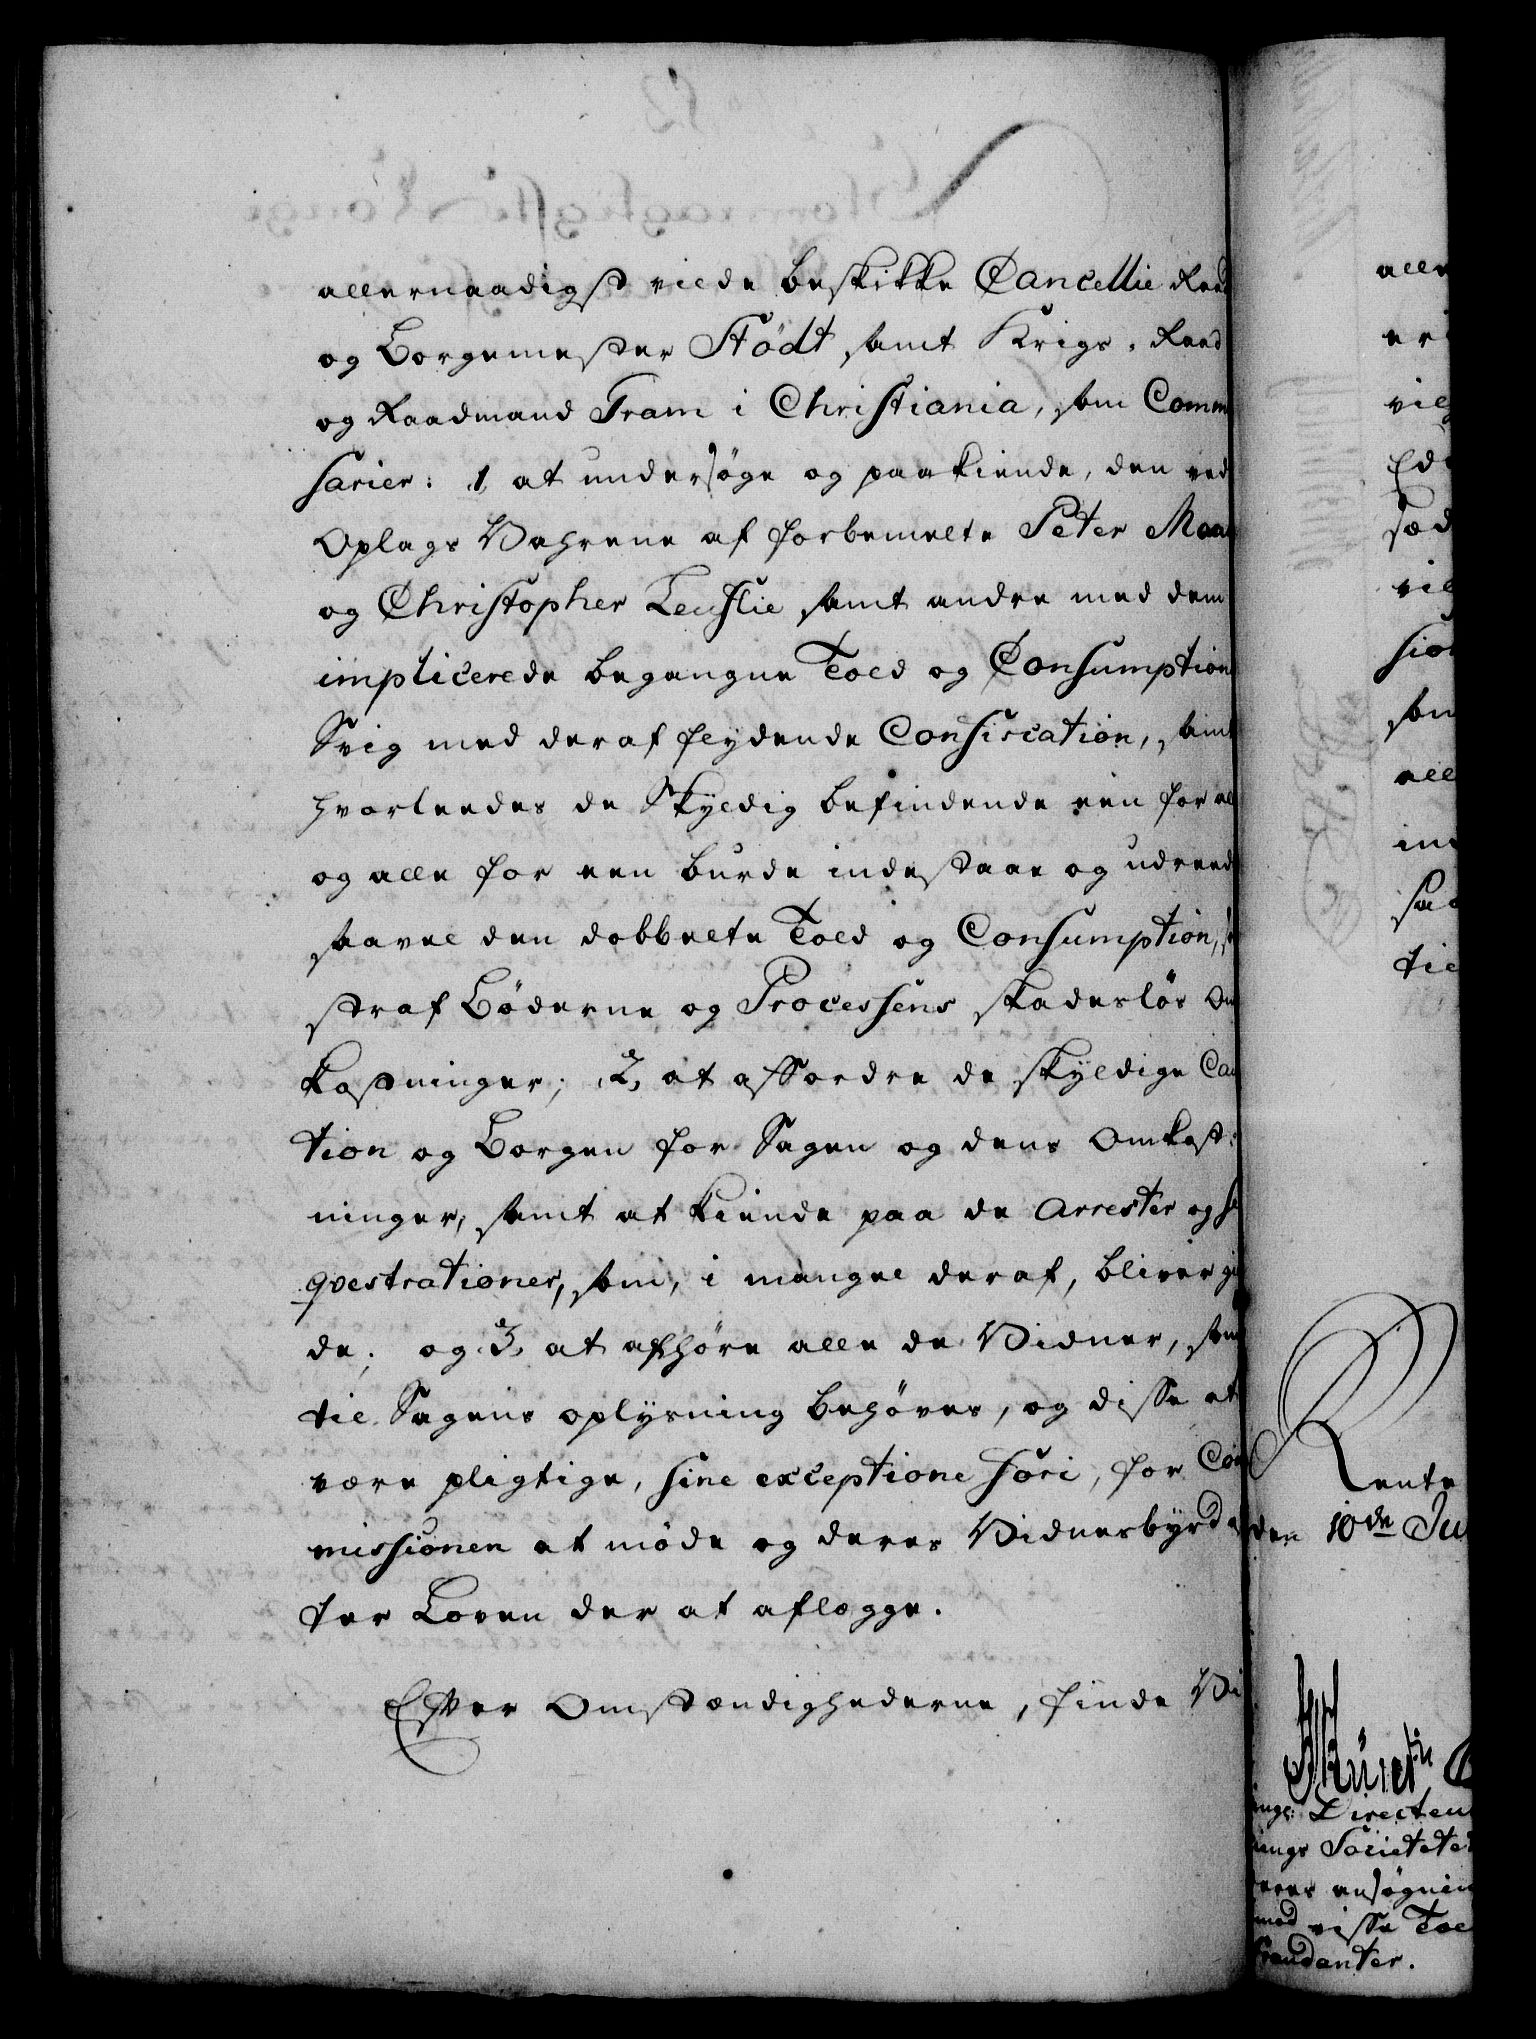 allernaadigst vilde beskikke Cancellie Raad
og Borgemester Stödt samt Krigs-Raad
og Raadmand Fram i Christiania, som Comm
sarier: 1, at undersøge og paakiende, den ved
Oplags Vahrene af forbemelte Peter Maa
og Christopher Leuslie samt andre med dem
implicerede begangne Told og Consumption
Svig med deraf flydende Confiscation, samt
hvorleedes de Skyldig befindende een for all
og alle for een burde indestaae og udreed
saavel den dobbelte Told og Consumption,
straf Bøderne og Processens skadesløs Om
kostninger; 2, at affordre de skyldige Cau
tion og Borgen for Sagen og dens Omkost:
ninger, samt at kiende paa de Arrester og Se
qvestrationer, som, i mangel deraf, bliver gi
de; og 3, at afhøre alle de Vidner, som
til Sagens oplysning behøves, og disse at
være pligtige, sine exceptione fori, for Com
missionen at møde og deres Vidnesbyrd
ter Loven der at aflægge.
Efter Omstændighederne, finde Vi
alle
er
vil
Ed
sæd
vil
sion
som
all
in
saa
til
Rente
den 10de Ju
Directeu
ings Societetet
deres ansøgnin
mod visse Tol
fraudanter.